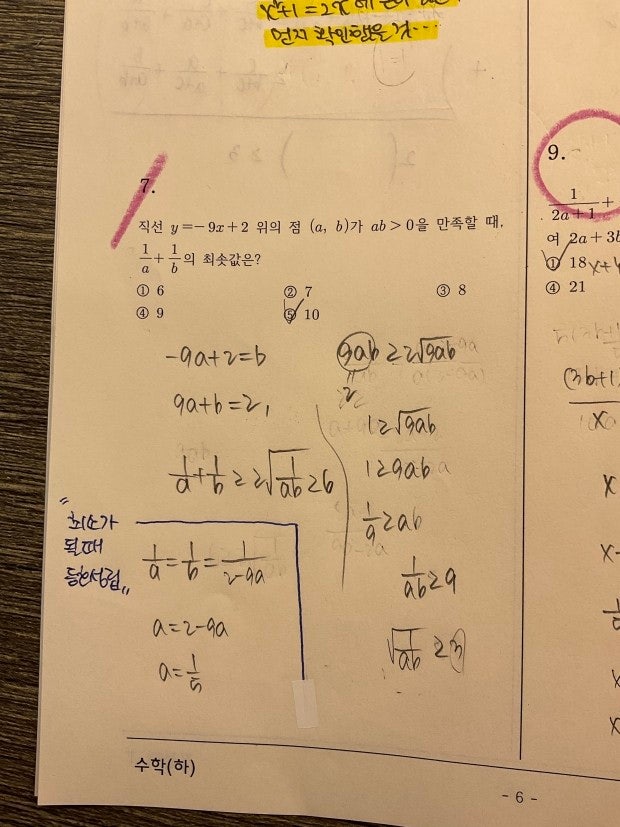 x²+1=2x에
먼저 확인했을 것...
7.
직선 y=-9x+2 위의 점 (a, b)가 ab>0을 만족할 때,
1/a+1/b의 최솟값은?
① 6 ② 7 ③ 8
④ 9 ⑤ 10
-9a+2=b
9a+b=2,
1/a+1/b≥2√(1/ab)≥6
"최소가
될 때
등호성립"
1/a=1/b=1/(2-9a)
a=2-9a
a=1/5
9ab≥2√9ab
2
1≥√9ab
1≥9ab
1/9≥ab
1/ab≥9
√(1/ab)≥3
수학(하)
- 6 -
9.
1/(2a+1)+
여 2a+3b
① 18
④ 21
(3b+1)
x
x
x-
x
x